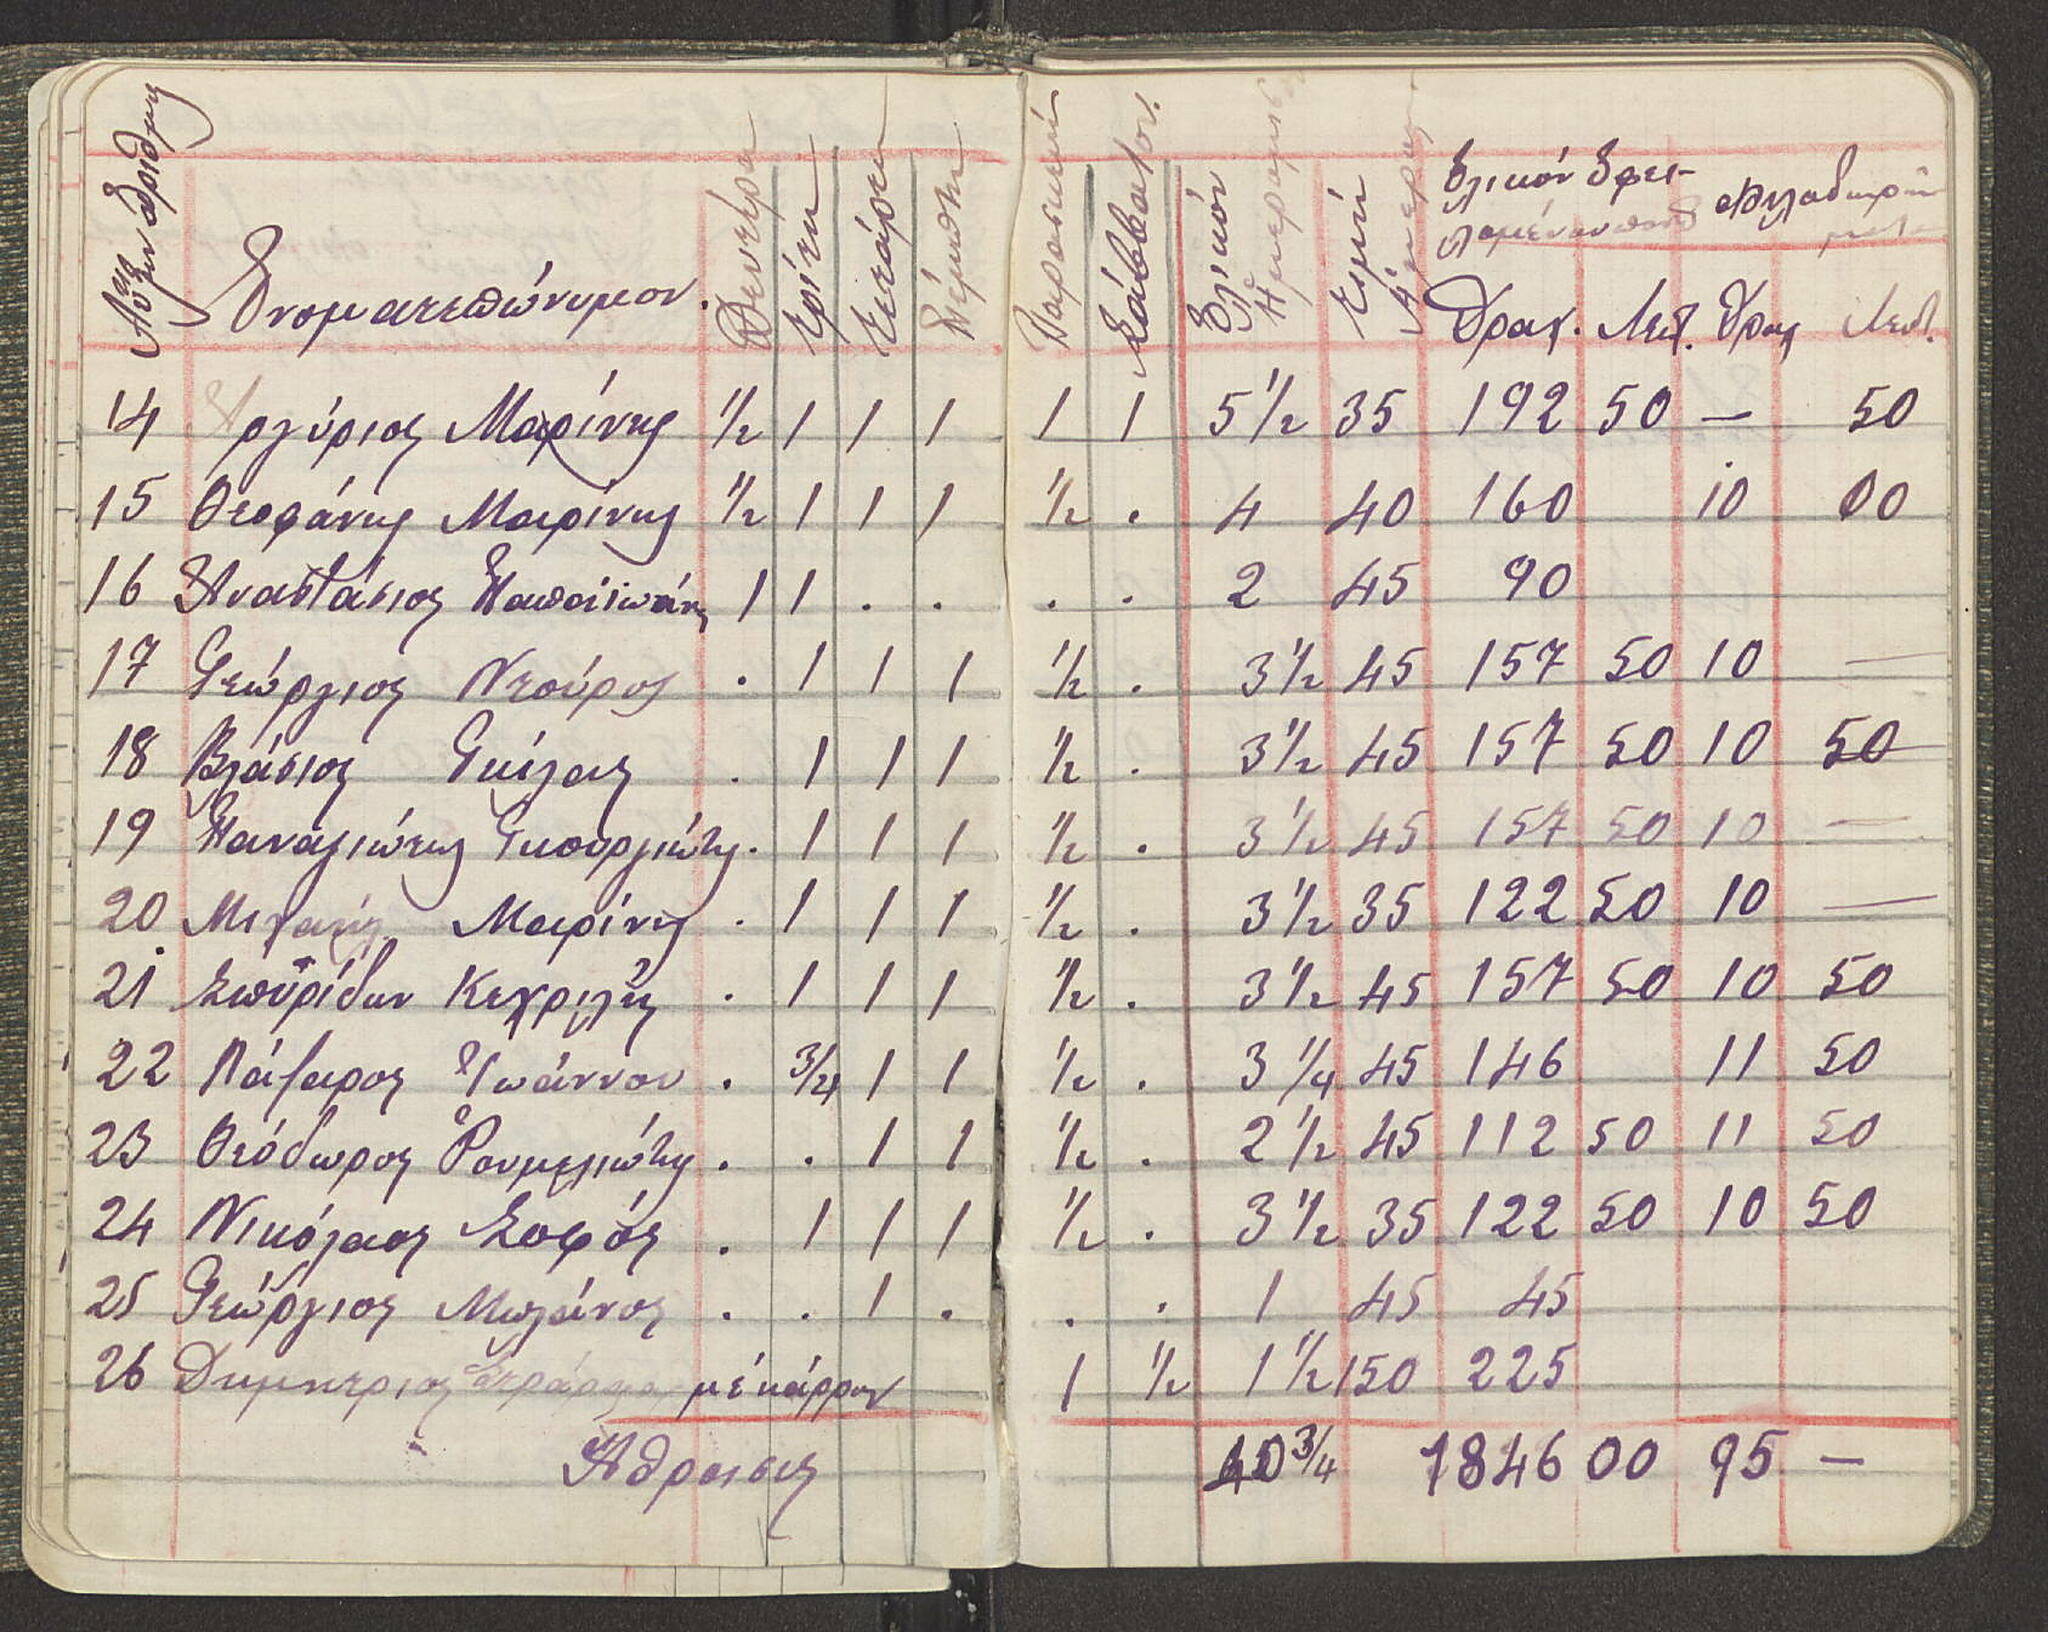 Αὔξων ἀριθμός Ὀνοματεπώνυμον Δευτέρα Τρίτη Τετάρτη Πέμπτη Παρασκευή Σάββατον Ὁλικόν Ἡμερομίσθ. Τιμή Ἡμερομ. Ὁλικόν Ὀφει-
Δραχ. Λεπ. Δραχ Λεπτ.
14 Ἀργύριος Μαρίνης 1/2 1 1 1 1 1 5 1/2 35 192 50 — 50
15 Θεοφάνης Μαρίνης 1/2 1 1 1 1/2 . 4 40 160 10 00
16 Ἀναστάσιος Παπαϊωάνν 1 1 . . . . 2 45 90
17 Γεώργιος Ντούρος . 1 1 1 1/2 . 3 1/2 45 157 50 10 —
18 Βλάσιος Γκίλας . 1 1 1 1/2 . 3 1/2 45 157 50 10 50
19 Παναγιώτης Γκουργιώτης . 1 1 1 1/2 . 3 1/2 45 157 50 10 —
20 Μιχαήλ Μαρίνης . 1 1 1 1/2 . 3 1/2 35 122 50 10 —
21 Σπυρίδων Κεχριλῆς . 1 1 1 1/2 . 3 1/2 45 157 50 10 50
22 Λάζαρος Ἰωάννου . 3/4 1 1 1/2 . 3 1/4 45 146 11 50
23 Θεόδωρος Ῥουμελιώτης . . 1 1 1/2 . 2 1/2 45 112 50 11 50
24 Νικόλαος Σοφός . 1 1 1 1/2 . 3 1/2 35 122 50 10 50
25 Γεώργιος Μυλάνος . . 1 . . . 1 45 45
26 Δημήτριος μέ κάρρον 1 1/2 1 1/2 150 225
Ἄθροισις 40 3/4 1846 00 95 —